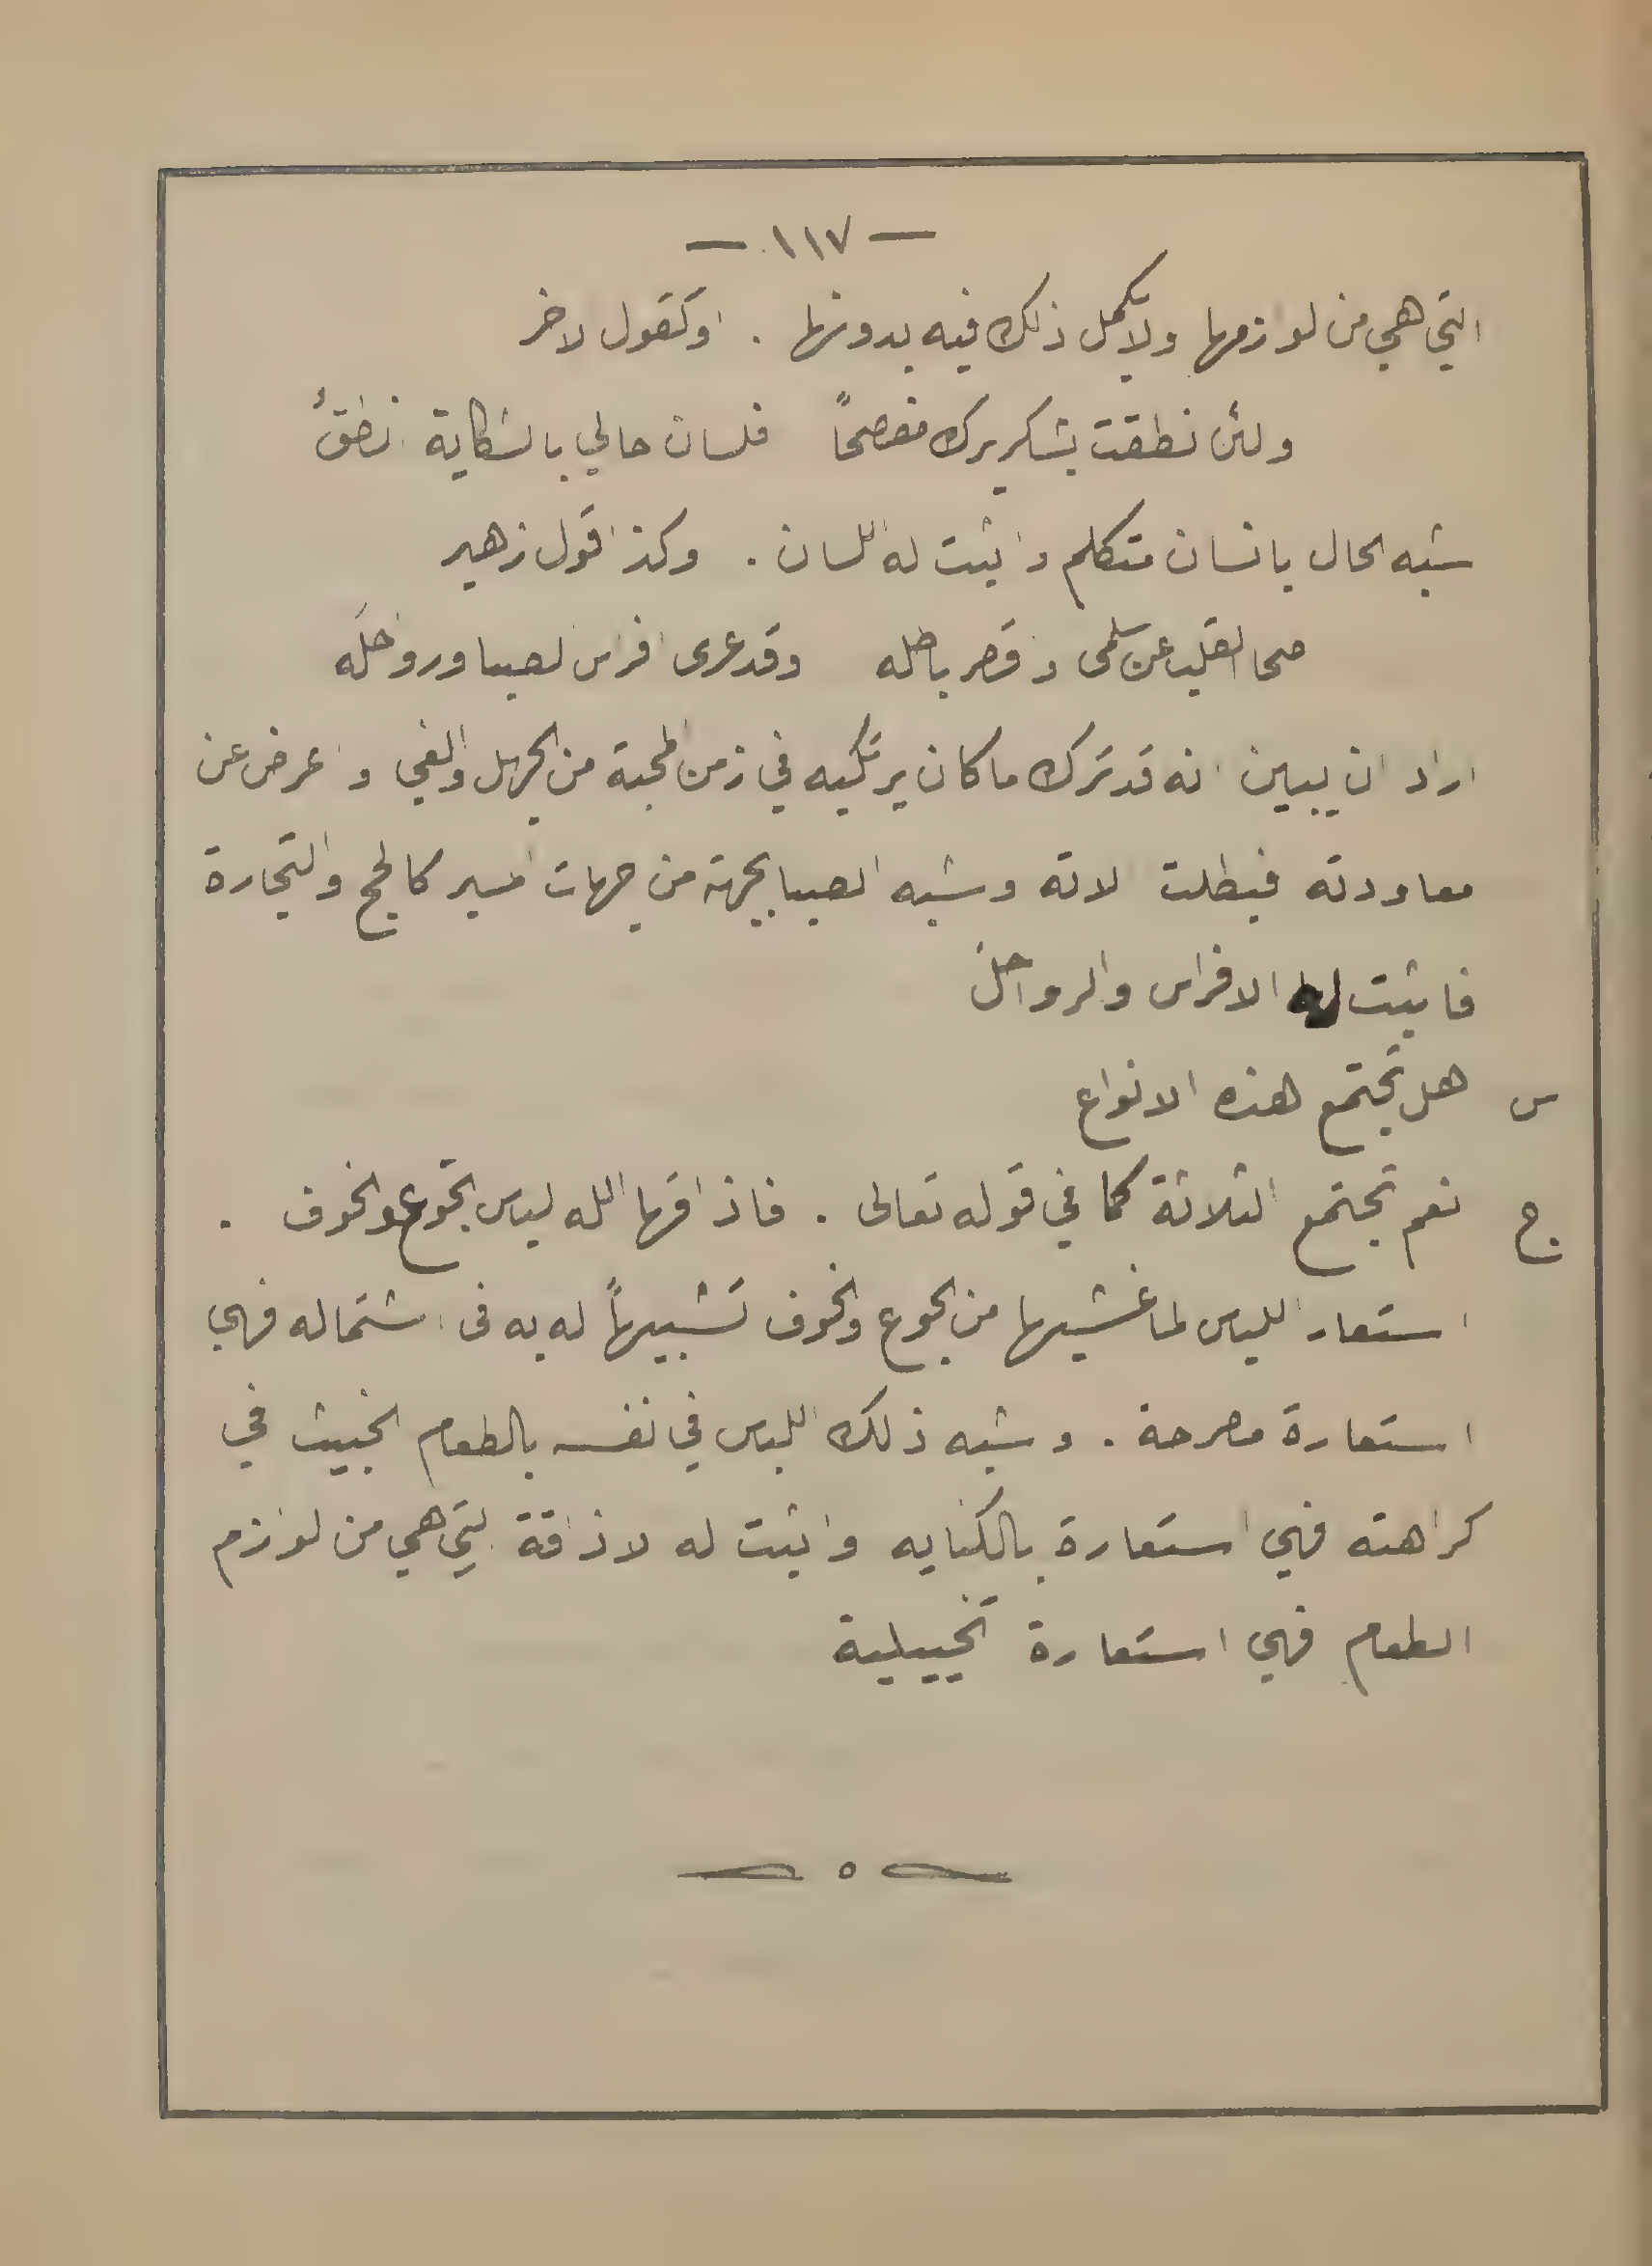 — ١١٧ —
التي هي من لوازمها ولا يكمل ذلك فيه بدونها . او كقول الاخر
ولئن نطقت بشكر برك مفصحاً فلسان حالي بالشكاية انطقُ
شبه الحال بانسان متكلم واثبت له اللسان . وكذا قول زهير
صحا القلب عن سلمى واقصر باطله وقد عرى افراس الصبا ورواحلَه
اراد ان يبين انه قد ترك ما كان يرتكبه في زمن المحبة من الجهل والغي واعرض عن
معاودته فبطلت الاته وشبه الصبا بجهة من جهات المسير كالحج والتجارة
فاثبت له الافراس والرواحلَ
س هل تجتمع هذه الانواع
ج نعم تجتمع الثلاثة كما في قوله تعالى . فاذاقها الله لباس الجوع والخوف .
استعار اللباس لما غشيها من الجوع والخوف تشبيهاً له به فى اشتماله فهي
استعارة مصرحة . وشبه ذلك اللباس في نفسه بالطعام الخبيث في
كراهته فهي استعارة بالكنايه واثبت له الاذاقة التي هي من لوازم
الطعام فهي استعارة تخييلية